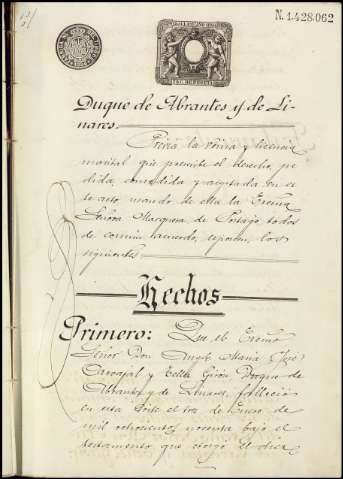 N. 1.428.062
Duque de Abrantes y de Li-
nares.
Previa la venia y licencia
marital que previene el derecho, pe
dida, concedida y aceptada en es
te acto, usando de ella la Excma
Señora Marquesa de Portago, todos
de comun acuerdo, exponen los
siguientes
Hechos
Primero: Que el Excmo
Señor Don Angel Maria José
Carvajal y Tellez Giron Duque de
Abrantes y de Linares, falleció
en esta Corte el tres de Enero de
mil ochocientos noventa bajo el
testamento que otorgó el diez